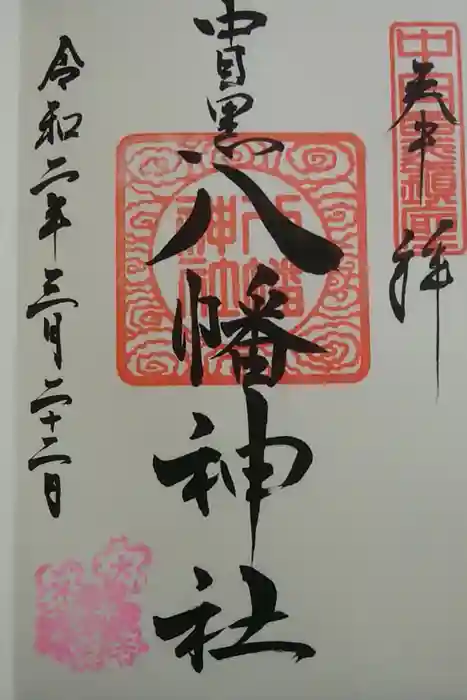 中目黒鎮座
奉拝
中目黒
八幡神社
八幡神社
令和二年三月二十二日